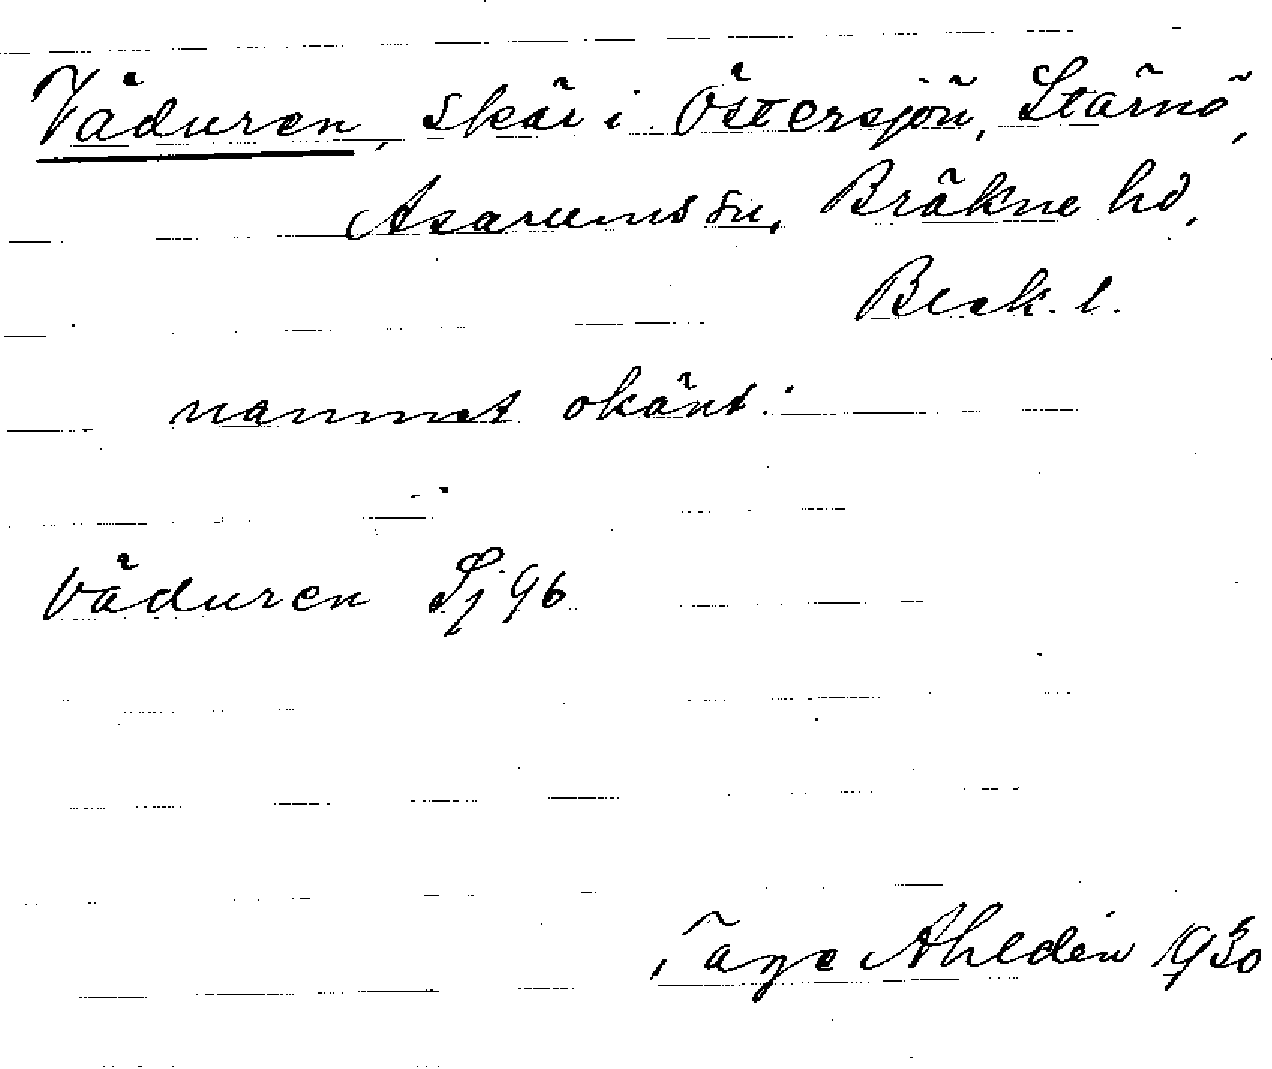 Väduren, skär i Östersjön, Stärnö,
Asarums sn, Bräkne hd,
Blek. l.
namnet okänt.
Väduren Sj 96
Tage Ahldén 1930